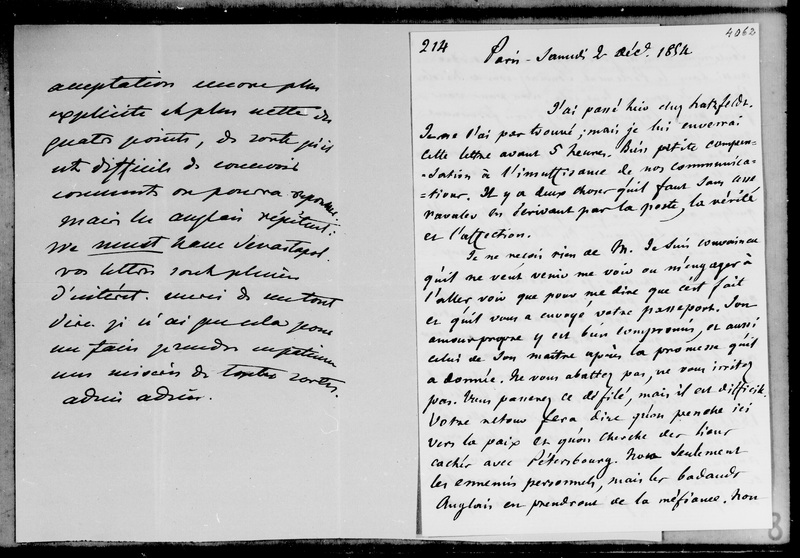 acceptation encore plus
explicite et plus nette des
quatre points, de sorte qu'il
est difficile de concevoir
comment on pourra reporter.
mais les anglais répètent:
we must have Sevastopol.
vos lettres sont pleines
d'intérêt. merci de me tout
dire. je n'ai que cela pour
me faire prendre en patience
mes misères de toutes sortes.
adieu adieu.
214
4062
Paris - Samedi 2 déc. 1854
J'ai passé hier chez hatzfeldt.
Je ne l'ai pas trouvé; mais je lui enverrai
cette lettre avant 5 heures. Bien petite compen-
-sation à l'insuffisance de nos communica-
-tions. Il y a deux choses qu'il faut sans cesse
ravaler en écrivant par la poste, la vérité
et l'affection.
Je ne reçois rien de M. Je suis convaincu
qu'il ne veut venir me voir ou m'engager à
l'aller voir que pour me dire que c'est fait
et qu'il vous a envoyé votre passeport. Son
amour propre y est bien compromis, et aussi
celui de son maître après la promesse qu'il
a donnée. Ne vous abattez pas, ne vous irritez
pas. Vous passerez ce défilé, mais il est difficile.
Votre retour fera dire qu'on penche ici
vers la paix et qu'on cherche des liens
cachés avec Pétersbourg. Non seulement
les ennemis personnels, mais les badauds
Anglais en prendront de la méfiance. Non
8